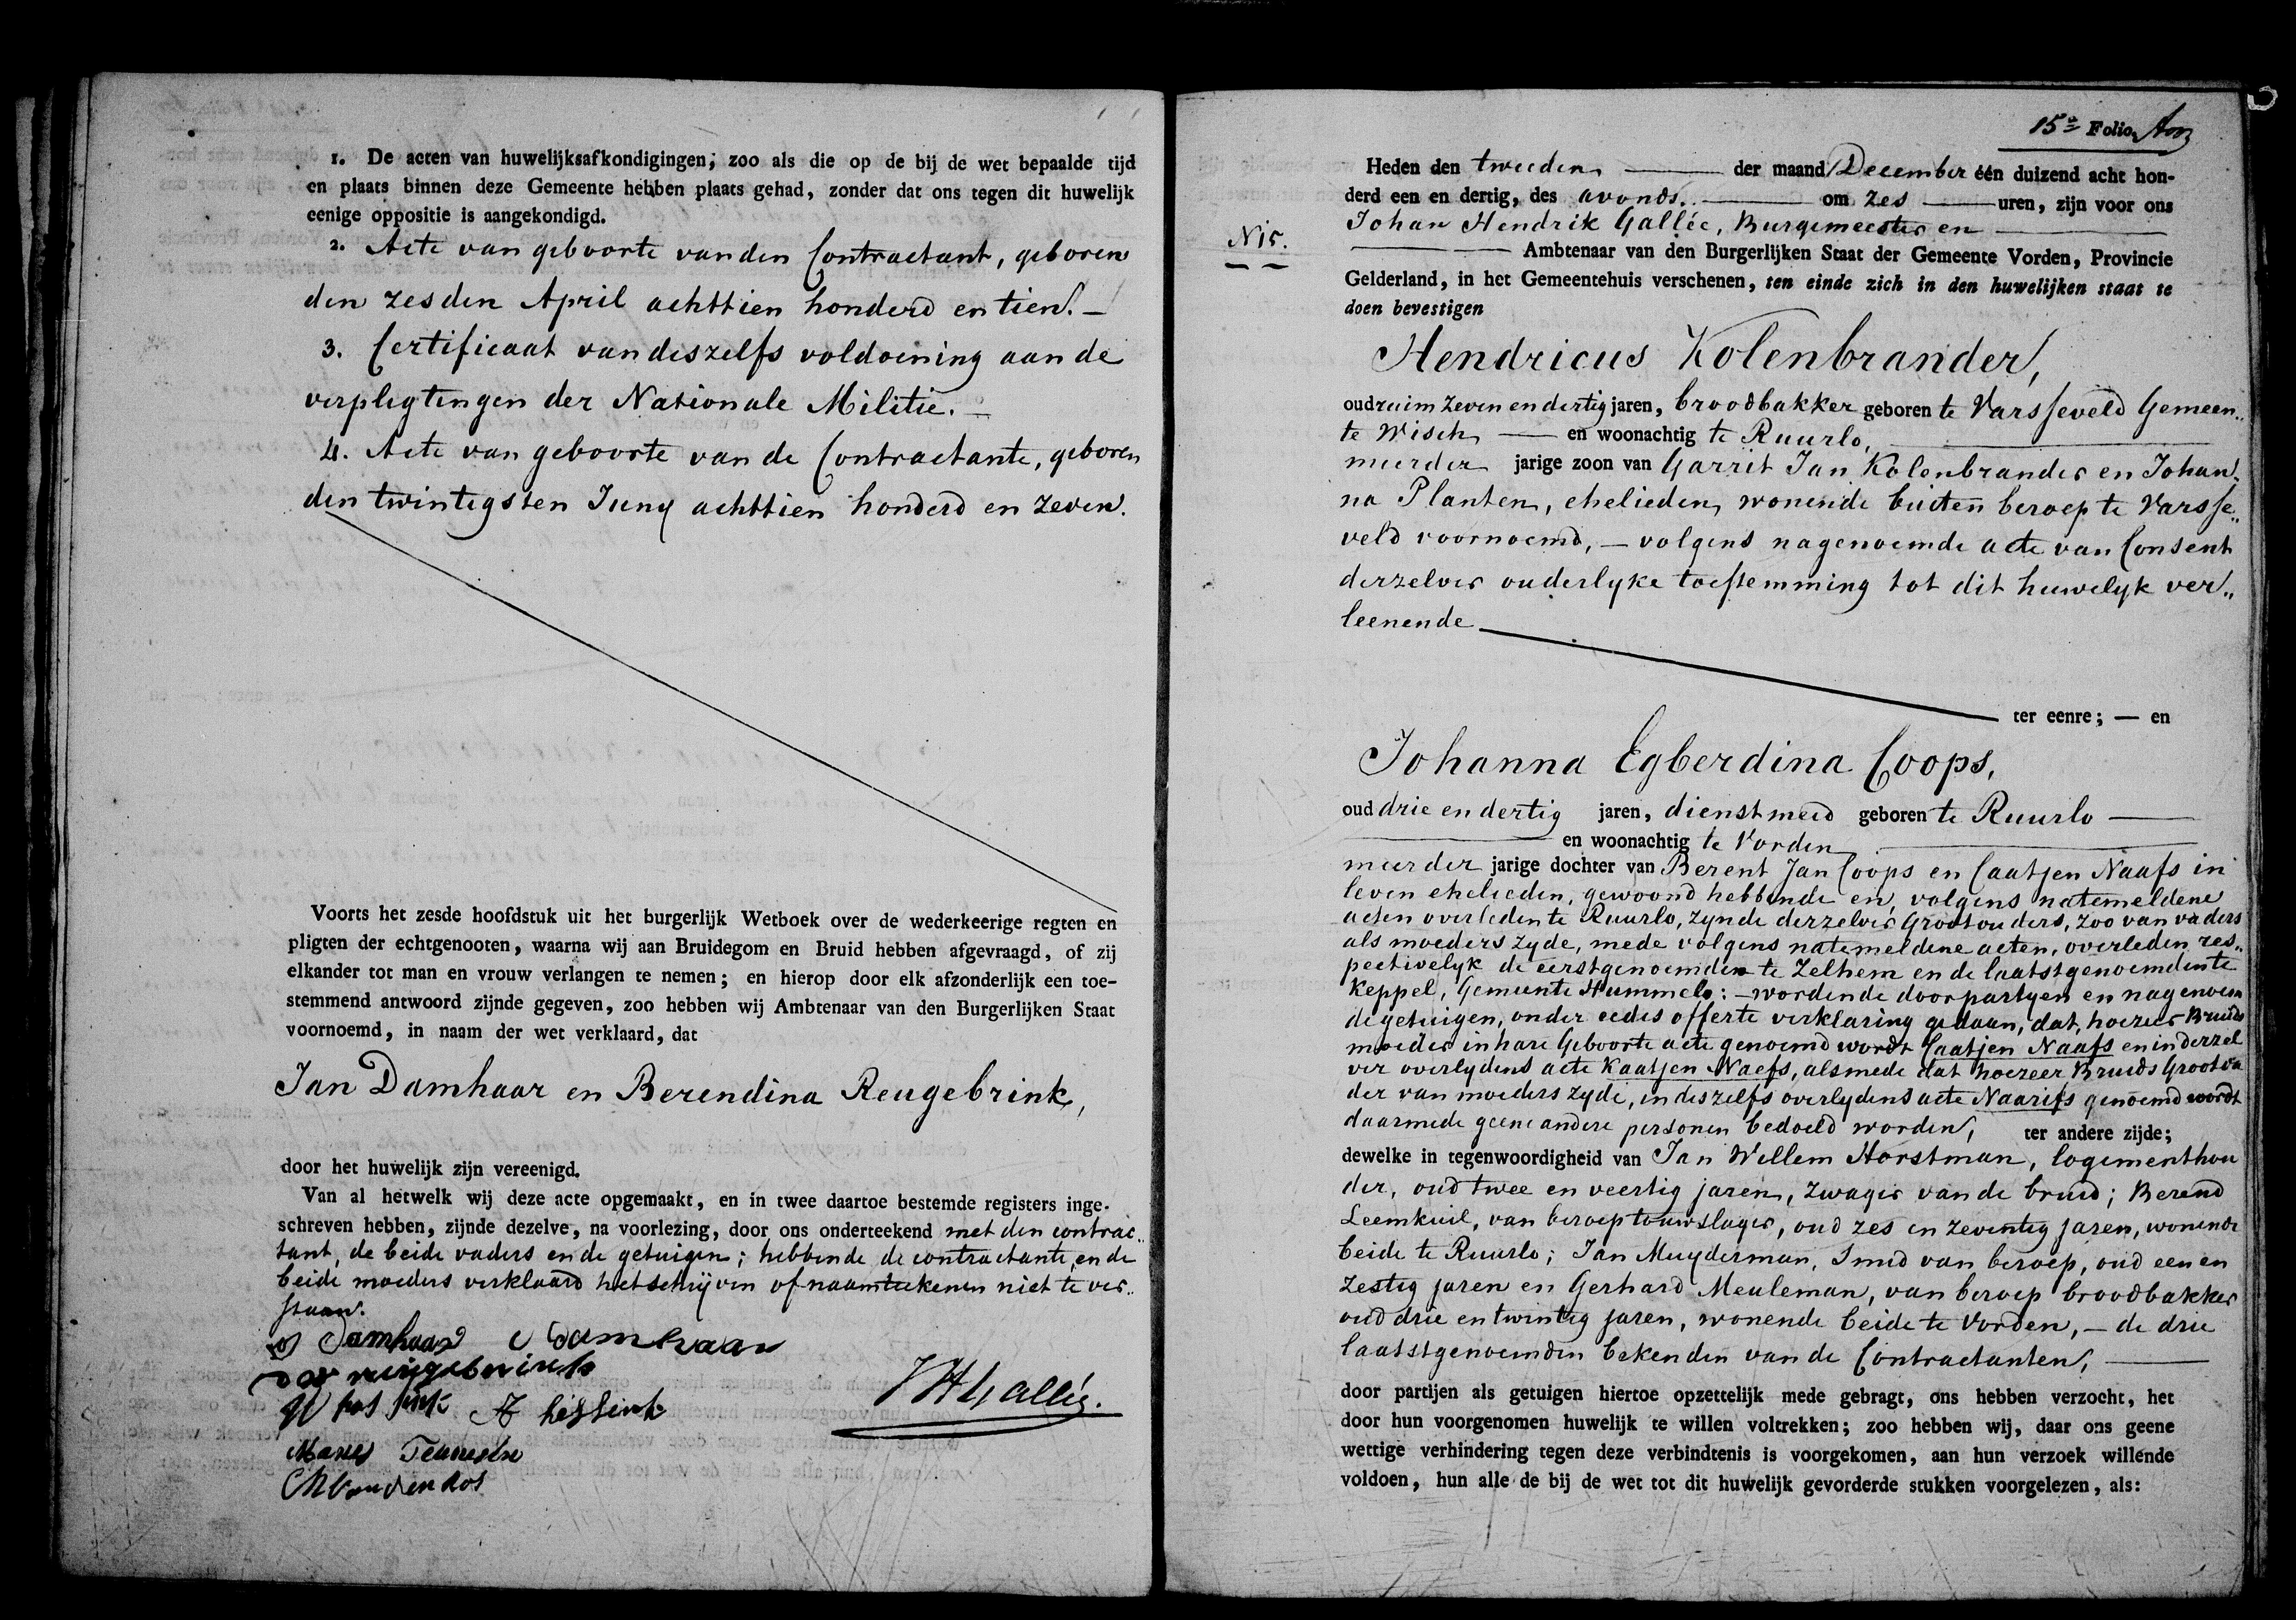 1. De acten van huwelijksafkondigingen; zoo als die op de bij de wet bepaalde tijd
en plaats binnen deze Gemeente hebben plaats gehad, zonder dat ons tegen dit huwelijk
eenige oppositie is aangekondigd.
2. Acte van geboorte van den Contractant, geboren
den zesden April achttien honderd en tien. —
3. Certificaat van deszelfs voldoening aan de
verpligtingen der Nationale Militie. —
4. Acte van geboorte van de Contractante, geboren
den twintigsten Juny achttien honderd en zeven.
Voorts het zesde hoofdstuk uit het burgerlijk Wetboek over de wederkeerige regten en
pligten der echtgenooten, waarna wij aan Bruidegom en Bruid hebben afgevraagd, of zij
elkander tot man en vrouw verlangen te nemen; en hierop door elk afzonderlijk een toe-
stemmend antwoord zijnde gegeven, zoo hebben wij Ambtenaar van den Burgerlijken Staat
voornoemd, in naam der wet verklaard, dat
Jan Damhaar en Berendina Reugebrink,
door het huwelijk zijn vereenigd.
Van al hetwelk wij deze acte opgemaakt, en in twee daartoe bestemde registers inge-
schreven hebben, zijnde dezelve, na voorlezing, door ons onderteekend met den contrac„
tant, de beide vaders en de getuigen; hebbende de contractante, en de
beide moeders verklaard het schrijven of naamteekenen niet te ver„
staan.
Damhaar Damhaar
reugebrink
JHGallée.
A hissink
Manes Teunissen
15e Folio.
Heden den tweeden — der maand December één duizend acht hon-
derd een en dertig, des avonds. — om zes — uren, zijn voor ons
Johan Hendrik Gallée, Burgemeester en —
N15.
— Ambtenaar van den Burgerlijken Staat der Gemeente Vorden, Provincie
Gelderland, in het Gemeentehuis verschenen, ten einde zich in den huwelijken staat te
doen bevestigen
Hendricus Kolenbrander,
oud ruim zeven en dertig jaren, broodbakker geboren te Varsseveld Gemeen„
te Wisch — en woonachtig te Ruurlo, —
meerder jarige zoon van Garrit Jan Kolenbrander en Johan„
na Planten, ehelieden, wonende buiten beroep te Varsse„
veld voornoemd, — volgens nagenoemde acte van Consent
derzelver ouderlyke toestemming tot dit huwelyk ver„
leenende
ter eenre; — en
Johanna Egberdina Coops,
oud drie en dertig jaren, dienstmeid geboren te Ruurlo —
— en woonachtig te Vorden —
meerder jarige dochter van Berent Jan Coops en Caatjen Naafs in
leven ehelieden, gewoond hebbende en, volgens natemeldene
acten overleden te Ruurlo, zynde derzelver Grootouders, zoo van vaders
als moeders zyde, mede volgens natemeldene acten, overleden, res„
pectivelyk de eerstgenoemden te Zelhem en de laatstgenoemden te
Keppel, Gemeente Hummelo: — wordende door partyen en nagenoem
de getuigen, onder eedes offerte verklaring gedaan, dat, hoezeer Bruids
moeder in hare Geboorte acte genoemd wordt Caatjen Naafs en in derzel
ver overlydens acte Kaatjen Naefs, alsmede dat hoezeer Bruids Grootva
der van moeders zyde, in deszelfs overlydens acte Naarifs genoemd wordt
daarmede geene andere personen bedoeld worden, ter andere zijde;
dewelke in tegenwoordigheid van Jan Willem Horstman, logementhou
der, oud twee en veertig jaren, zwager van de bruid; Berend
Leemkuil, van beroep touwslager, oud zes en zeventig jaren, wonende
beide te Ruurlo; Jan Muyderman, Smid van beroep, oud een en
zestig jaren en Gerhard Meuleman, van beroep broodbakker
oud drie en twintig jaren, wonende beide te Vorden, — de drie
laatstgenoemden bekenden van de Contractanten, —
door partijen als getuigen hiertoe opzettelijk mede gebragt, ons hebben verzocht, het
door hun voorgenomen huwelijk te willen voltrekken; zoo hebben wij, daar ons geene
wettige verhindering tegen deze verbindtenis is voorgekomen, aan hun verzoek willende
voldoen, hun alle de bij de wet tot dit huwelijk gevorderde stukken voorgelezen, als: